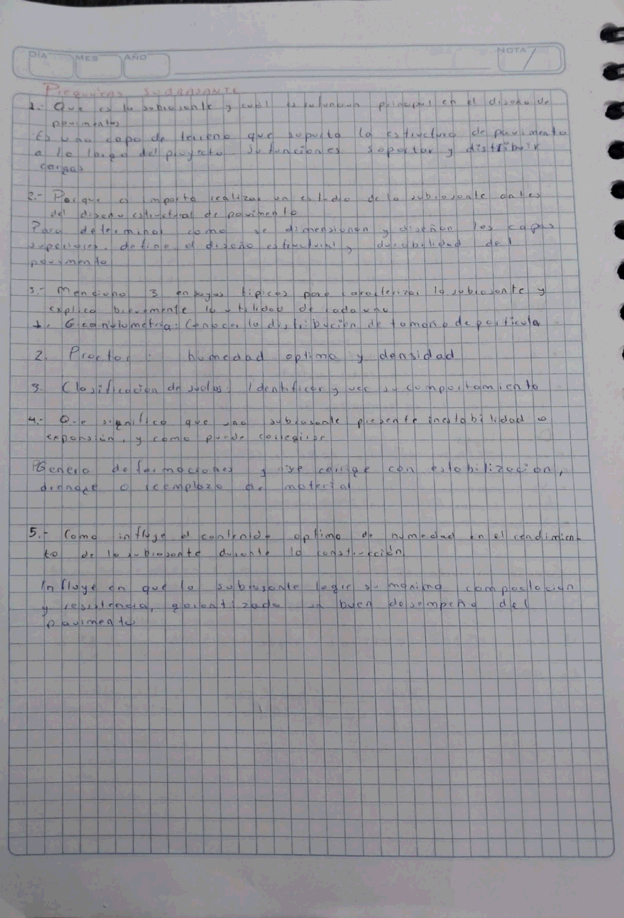 DIA
MES
AÑO
NOTA
Preguntas SUBRASANTE
1.- Que es la subrasante y cuál es su funcion principal en el diseño de
pavimentos
Es una capa de terreno que soporta la estructura de pavimento
a lo largo del proyecto. Su funciones soportar y distribuir
cargas
2.- Por que es importa realizar un estudio de la subrasante antes
del diseño estructural de pavimento
Para determinar como se dimensionan y diseñan las capas
superiores, define el diseño estructural y durabilidad del
pavimento
3.- Menciona 3 ensayos típicos para caracterizar la subrasante y
explica brevemente la utilidad de cada uno
1. Granulometria: Conocer la distribución de tamaño de particula
2. Proctor: humedad optima y densidad
3. Clasificacion de suelos: Identificar y ver su comportamiento
4.- Que significa que una subrasante presente inestabilidad o
expansión, y como puede corregirse
Genera deformaciones y se corrige con estabilización,
drenaje o reemplazo de material
5.- Como influye el contenido optimo de humedad en el rendimien-
to de la subrasante durante la construcción
Influye en que la subrasante logre su maxima compactacion
y resistencia, garantizada un buen desempeño del
pavimento